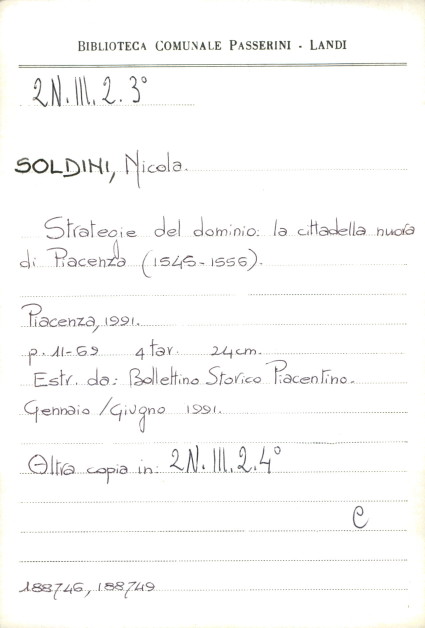 BIBLIOTECA COMUNALE PASSERINI - LANDI
2N.III.2.3°
SOLDINI, Nicola.
Strategie del dominio: la cittadella nuova
di Piacenza (1545-1556).
Piacenza, 1991.
p. 11-69 4 tav. 24cm.
Estr. da: Bollettino Storico Piacentino.
Gennaio/Giugno 1991.
Altra copia in: 2N.III.2.4°
C
188746, 188749